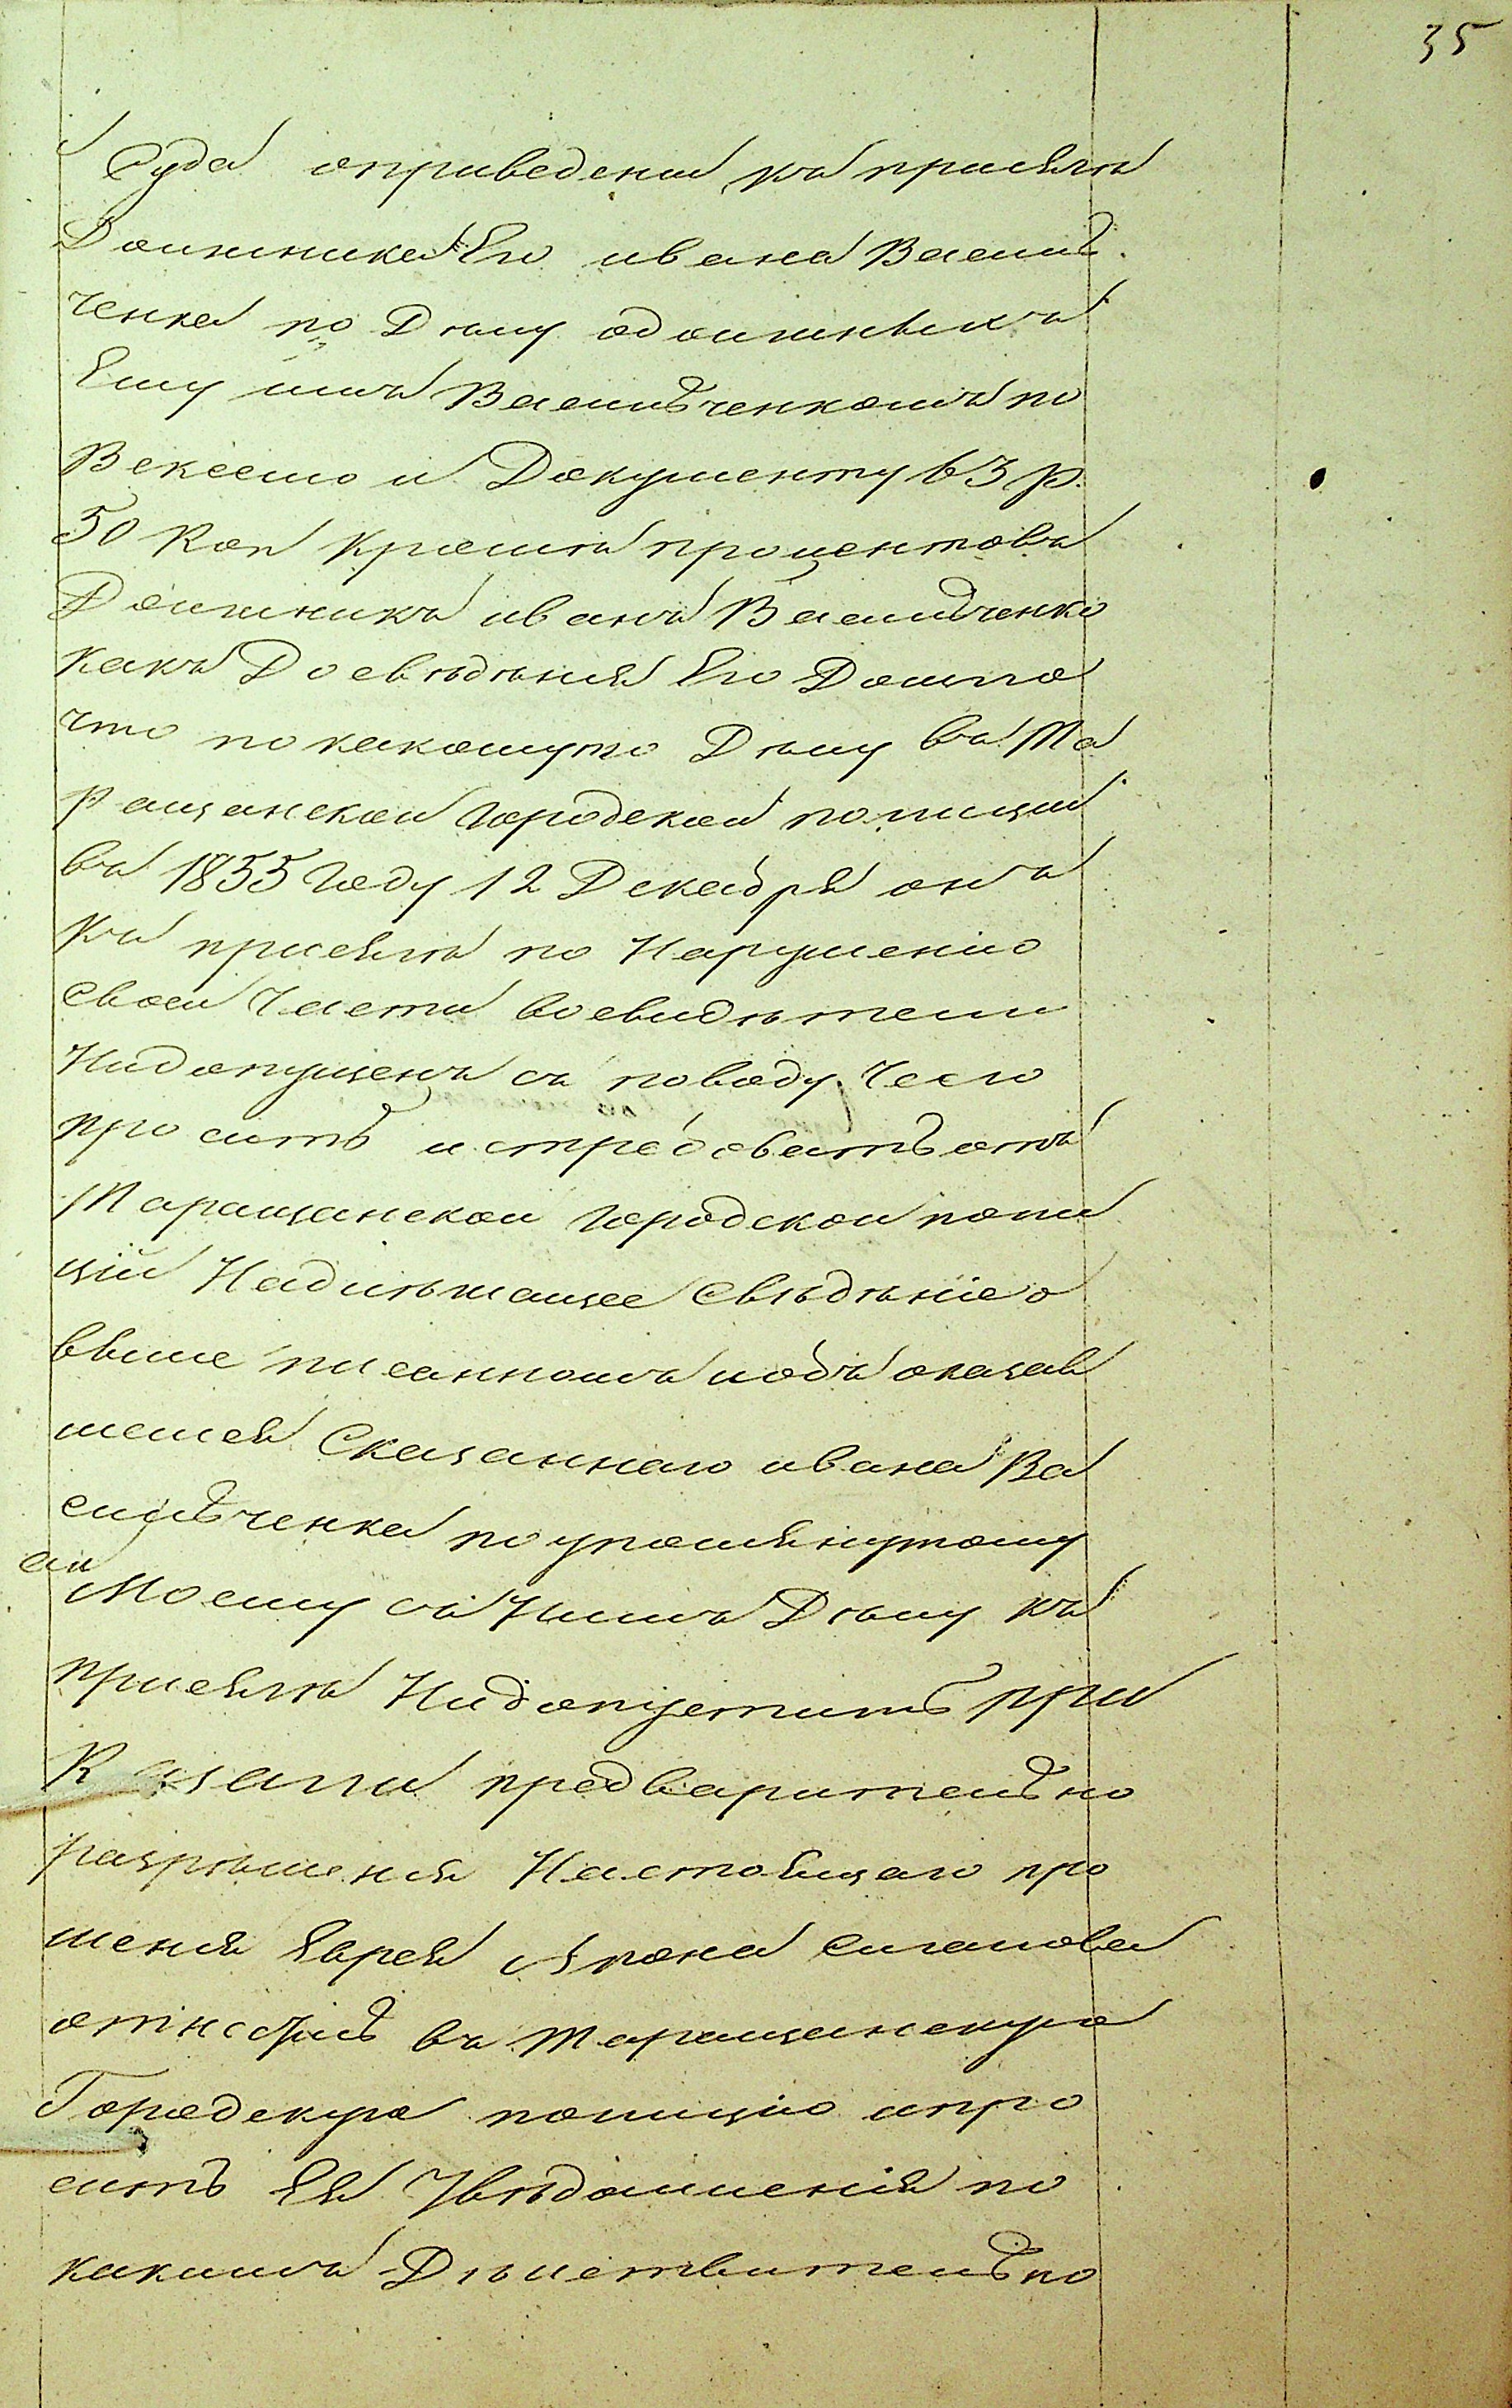 35
Суда оприведении къ присягѣ
Должника Его ивана Василь
ченка по Дѣлу одолжныхъ
Ему имъ Васильченкомъ по
Векселю и Документу 63 р.
50 Коп Кромѣ процентовъ
Должникъ иванъ Васильченко
какъ До свѣдѣния Его Дошло
что по какомуто Дѣлу въ Та
ращанской городской полиции
въ 1855 Году 12 Декабря онъ
къ присягѣ по Нарушению
своей Чести восвидѣтели
Нидопущенъ съ поводу Чего
проситъ истребовать отъ
Таращанской городской поли
ціи Надилѣжащее свѣдѣніе о
выше писанномъ иобъ оказав
шемся Сказаннаго ивана Ва
сильченка поупомянутому
ли
Моему съ Нимъ Дѣлу къ
присягѣ Нидопустить При
Казали предварительно
разрѣшения Настоящаго про
шения Еврея
отнестись въ Таращанскую
Городскую полицию ипро
сить Ея Увѣдомления по
какимъ Дѣйствительно